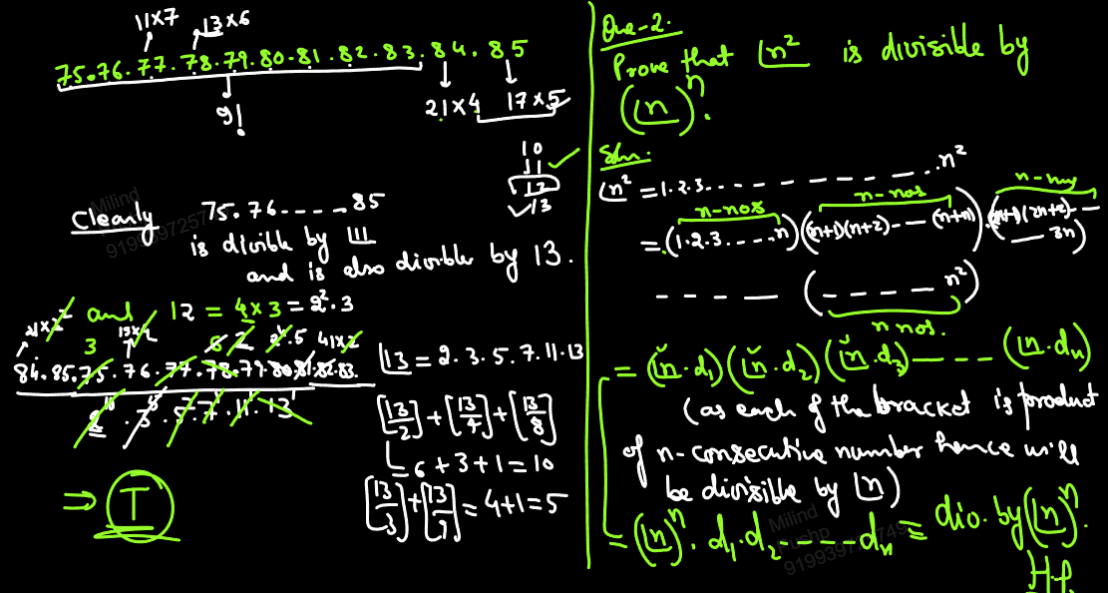 11×7 13×6
75.76.77.78.79.80.81.82.83.84.85
9! 21×4 17×5
10
11
12
13
Clearly 75.76.....85
is divible by
and is also divible by 13.
and 12 = 4×3 = 2².3
21×2² 3 13×2 8 2 2⁴.5 41×2
84.85.75.76.77.78.79.80.81.82.83.
2¹⁰.3⁵.5².7¹.11¹.13¹
⇒ T
|13 = 2.3.5.7.11.13
[13/2]+[13/4]+[13/8]
6+3+1=10
[13/3]+[13/9]=4+1=5
Que-2.
Prove that |n² is divisible by
(|n)ⁿ.
Soln.
|n² = 1.2.3..................n²
n-nos n-nos n-
= (1.2.3.....n)(n+1)(n+2)---(n+n)).(2n+1)(2n+2)---
--- 3n)
----- (----- n²)
n nos.
= (|n.d₁)(|n.d₂)(|n.d₃)---- (|n.dₙ)
(as each of the bracket is product
of n-consecutive number hence will
be divisible by |n)
= (|n)ⁿ.d₁.d₂-----dₙ = div. by (|n)ⁿ.
H.P.
Milind
9199397257
Milind
Pushp